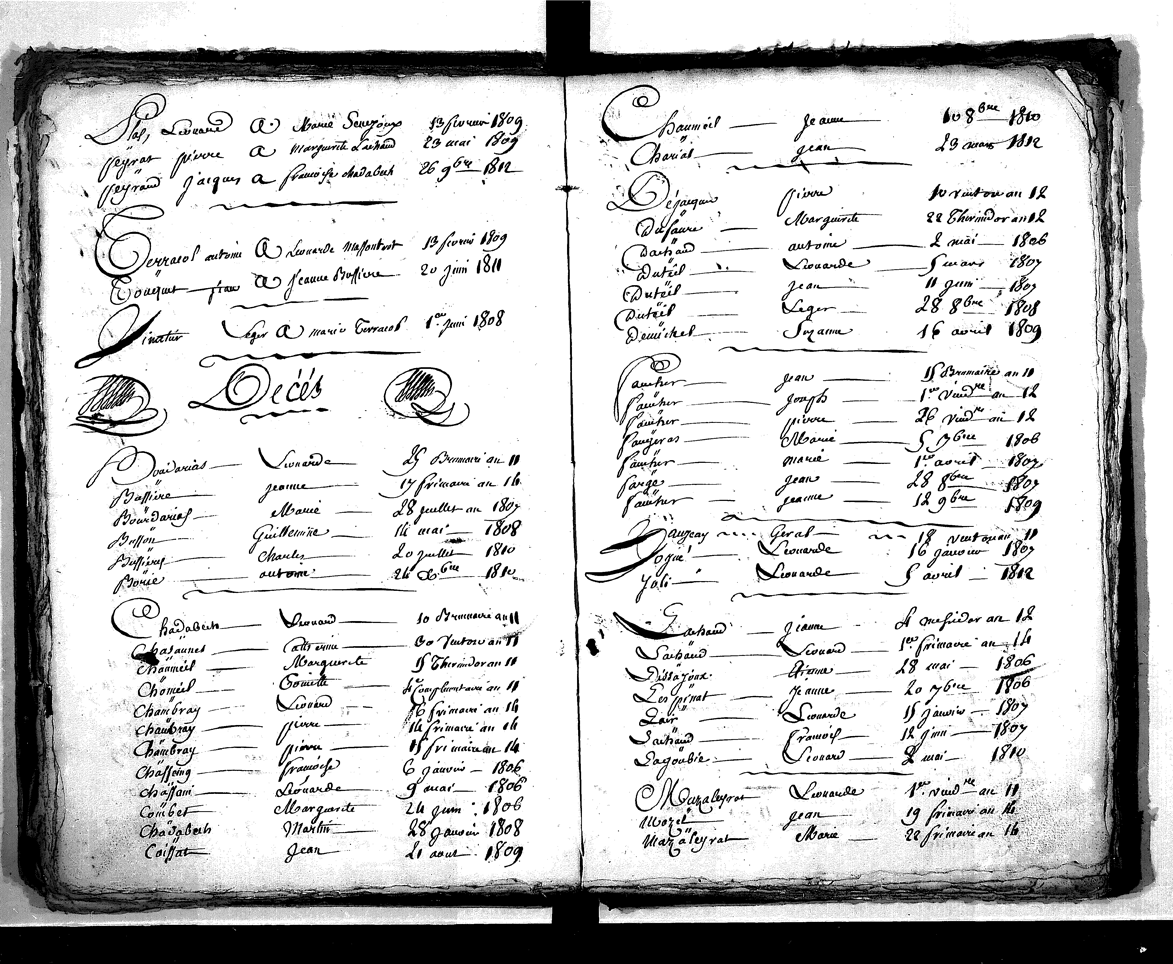 Plas, Léonard A Marie Senéjoux 13 fevrier 1809
peÿrat pierre A Marguerite Lachaud 23 mai 1809
peÿraud jacques a françoise chadabech 26 9bre 1812
Terracol antoine A Léonarde Massoutrot 13 fevrier 1809
Touquet jean A Jeanne Bussiere 20 juin 1811
Vinatier Léger A marie Terracol 1er juin 1808
Décés
Bourdarias Léonarde 25 Brumaire an 11
Bussiere jeanne 17 frimaire an 14
Bourdarias Marie 28 juillet an 1807
Busson Guillemine 14 mai 1808
Bussiere Charles 20 juillet 1810
Borie antoine 24 8bre 1810
Chadabech Léonard 10 Brumaire an 11
Catherine 30 Ventose an 11
Chaumeil Marguerite 15 Thermidor an 11
Chomeil 4e Complimentaire an 11
Chambray Léonard 6 frimaire an 14
Chambray pierre 14 frimaire an 14
Chambray pierre 15 frimaire an 14
Chassaing françoise 6 janvier 1806
Chassain Léonarde 9 mai 1806
Combet Marguerite 24 juin 1806
Chadabech Martin 28 janvier 1808
Coissat Jean 21 aout 1809
Chaumeil Jeanne 10 8bre 1810
Chariat jean 23 mars 1812
Déjacquin pierre 10 ventose an 12
Dufaure Marguerite 22 Thermidor an 12
Dachaud antoine 2 mai 1806
Duteil Léonarde 5 mars 1807
Duteil jean 11 juin 1807
Duteil Léger 28 8bre 1808
Demichel Suzanne 16 avril 1809
Faucher jean 15 Brumaire an 11
faucher joseph 1er vendre an 12
faucher pierre 26 vendre an 12
faugeras Marie 5 7bre 1806
faucher marie 1er avril 1807
farge jean 28 8bre 1807
faucher jeanne 12 9bre 1809
Gaugeay Geral 18 ventose an 11
Léonarde 16 janvier 1807
Joli Léonarde 5 avril 1812
Lachaud jeanne 4 messidor an 12
Lachaud Léonard 1er frimaire an 14
28 mai 1806
Lespinat jeanne 20 7bre 1806
Lair Léonarde 15 janvier 1807
Lachaud françois 12 juin 1807
Lagoubie Léonard 2 mai 1810
Mazaleyrat Léonarde 1er vendre an 11
Mozet jean 19 frimaire an 14
Mazaleyrat Marie 22 frimaire an 14